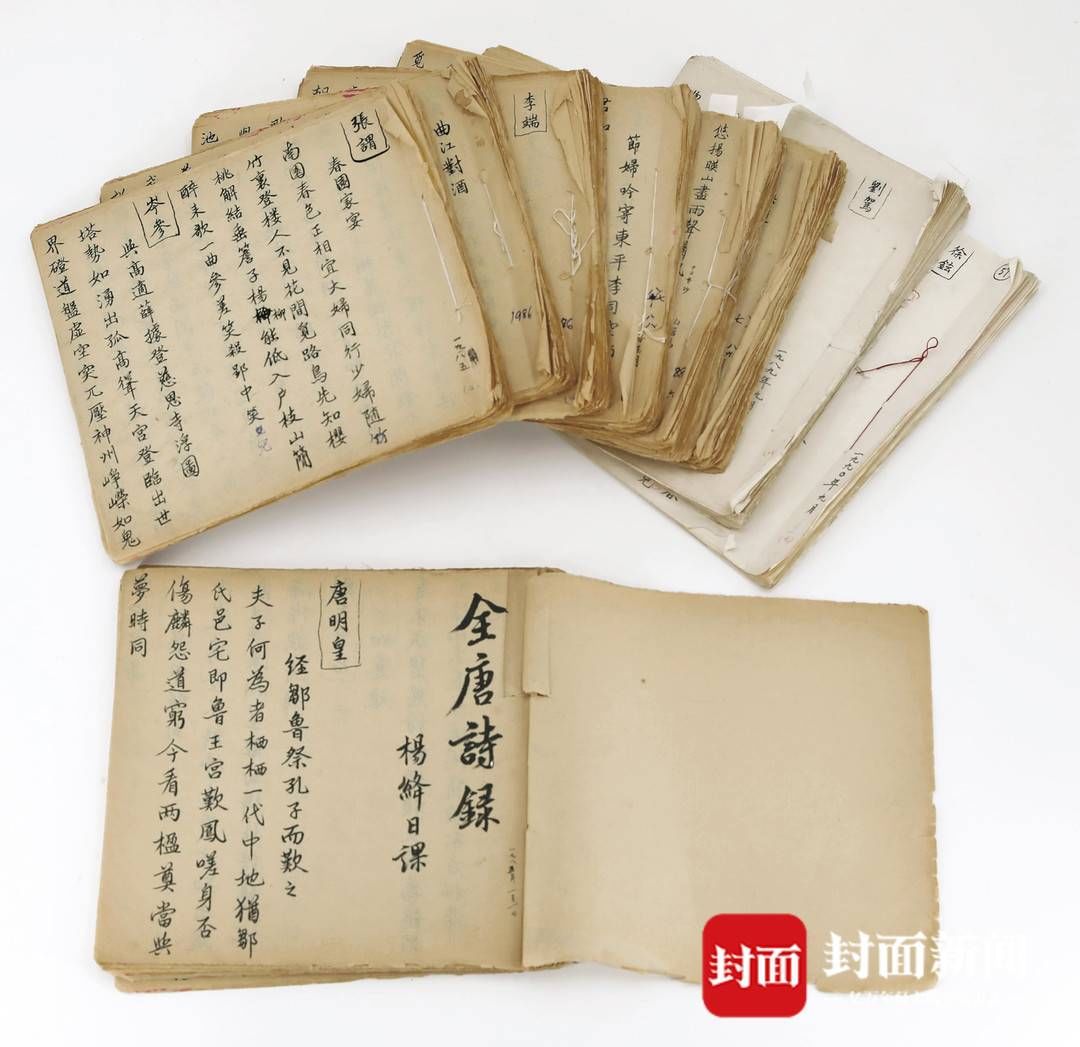 張謂
春園家宴
南園春色正相宜大婦同行少婦随
竹裏登楼人不見花間覓路鳥先知櫻
桃解結垂簷子楊柳能低入户枝山簡
醉来歌一曲参差笑殺郢中笑兒
岑参
與高適薛據登慈恩寺浮圖
塔勢如湧出孤高聳天宫登臨出世
界磴道盤虚空突兀壓神州崢嶸如鬼
一九八五
曲江對酒
1986
李端
86
節婦吟寄東平李司空
悠揚映山盡雨聲
劉駕
一九八九年九月
51
徐鉉
一九九〇年九月
全唐詩録
楊絳日課
唐明皇
经鄒魯祭孔子而歎之
夫子何為者栖栖一代中地猶鄒
氏邑宅即魯王宫歎鳳嗟身否
傷麟怨道窮今看两楹奠當與
夢時同
封面
封面新闻